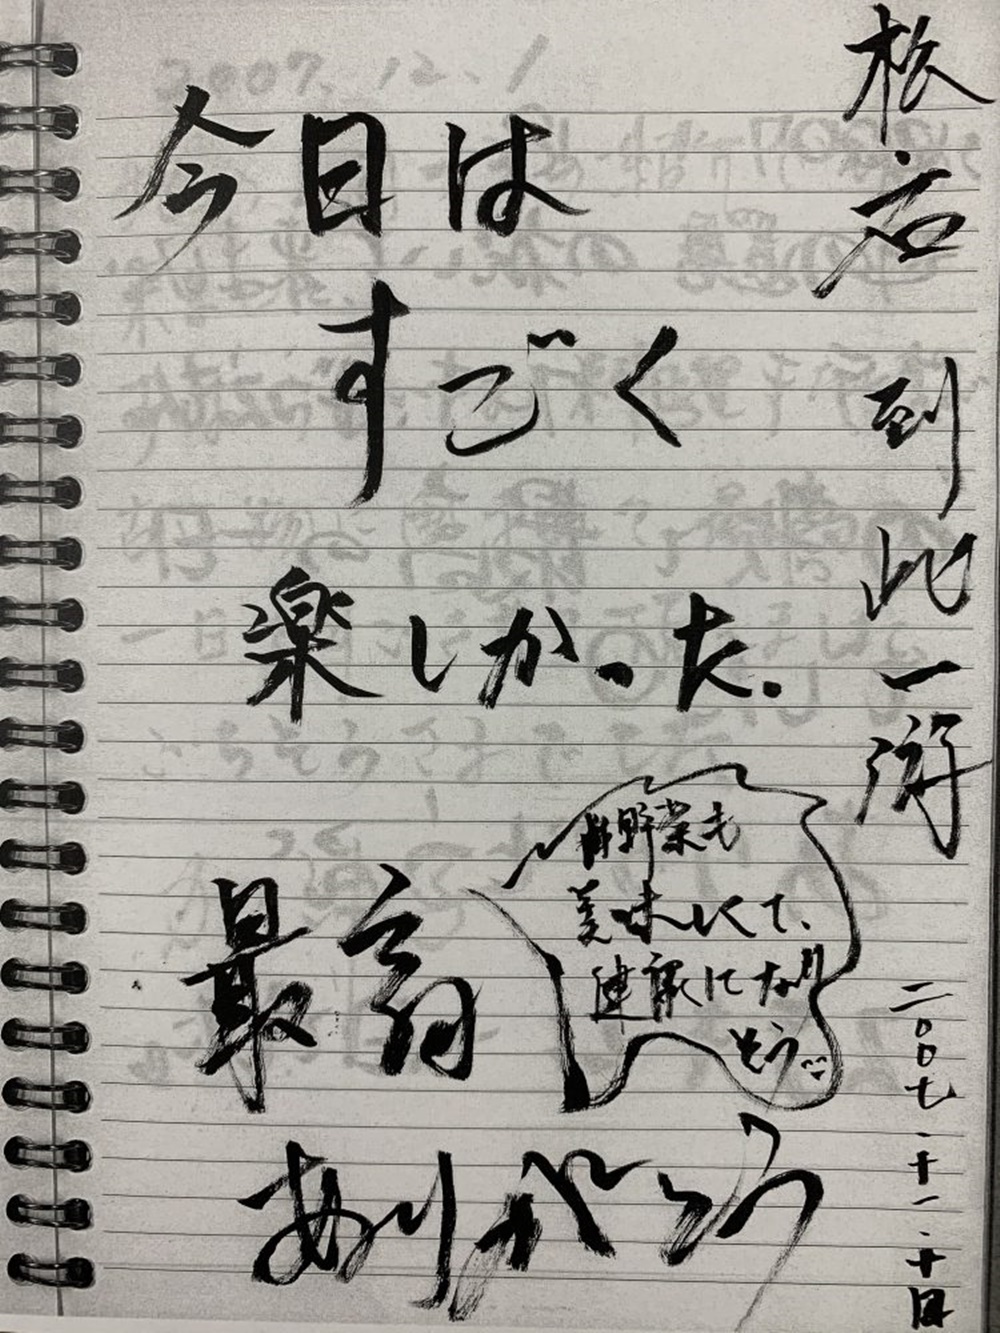 松岩到此一游
二〇〇七.十一.十日
今日は
すごく
楽しかった.
最高
野菜も
美味しくて、
健康になり
そう
ありがとう